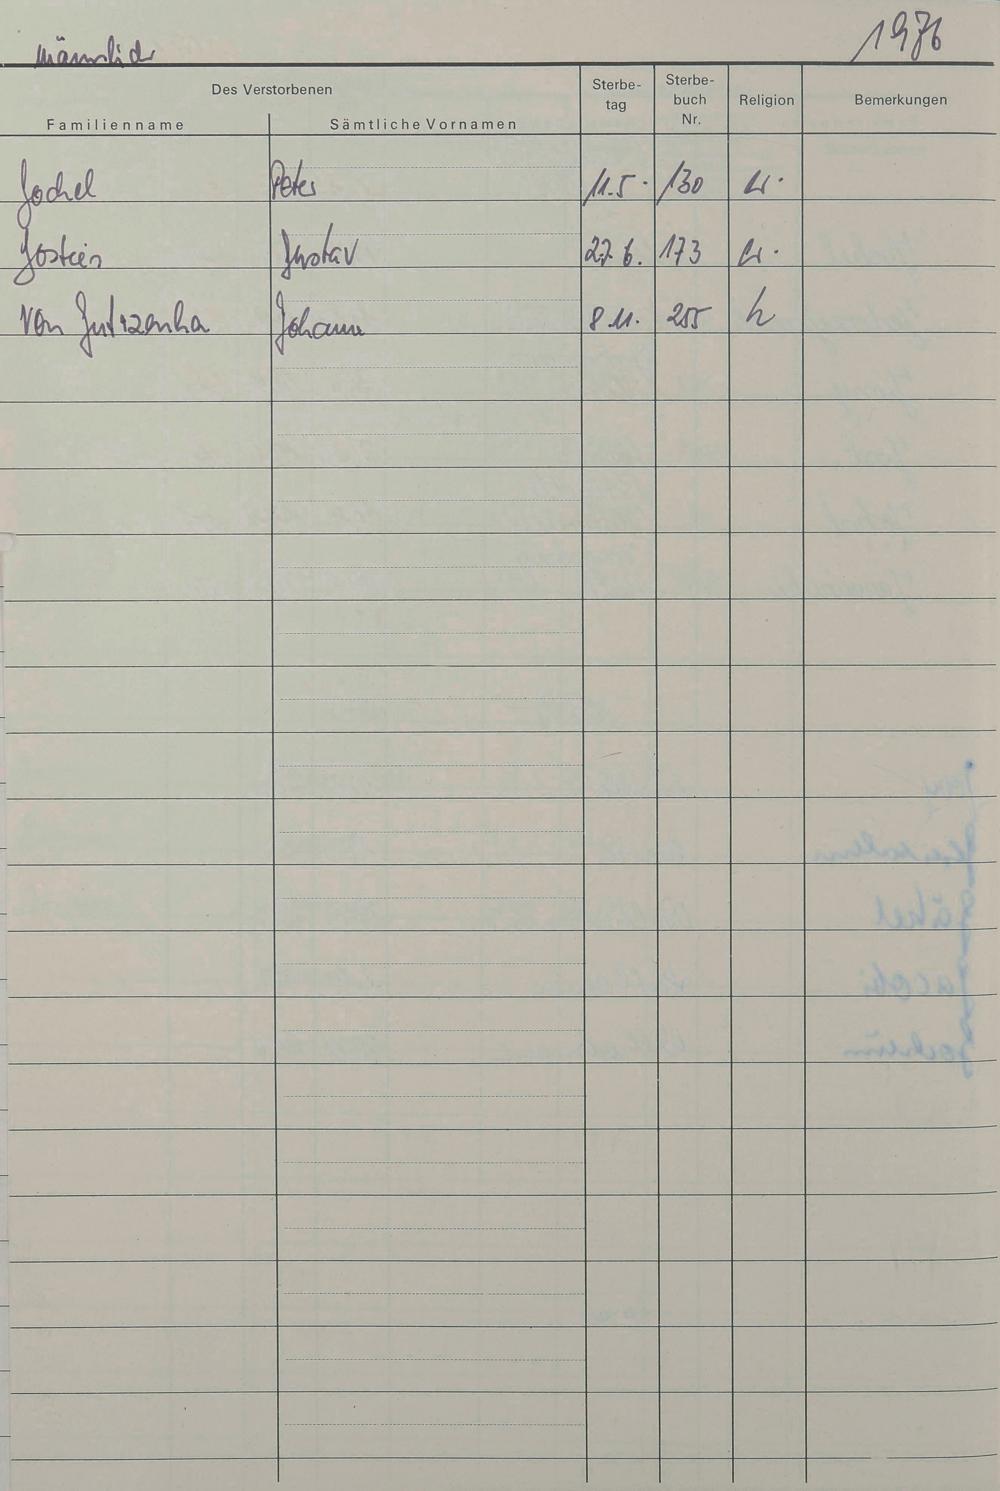 männlich 1976
Des Verstorbenen
Familienname Sämtliche Vornamen Sterbe-
tag Sterbe-
buch
Nr. Religion Bemerkungen
Jochel Peter 11.5. 130
Jostein Gustav 27.6. 173
von Johann 8 11. 255